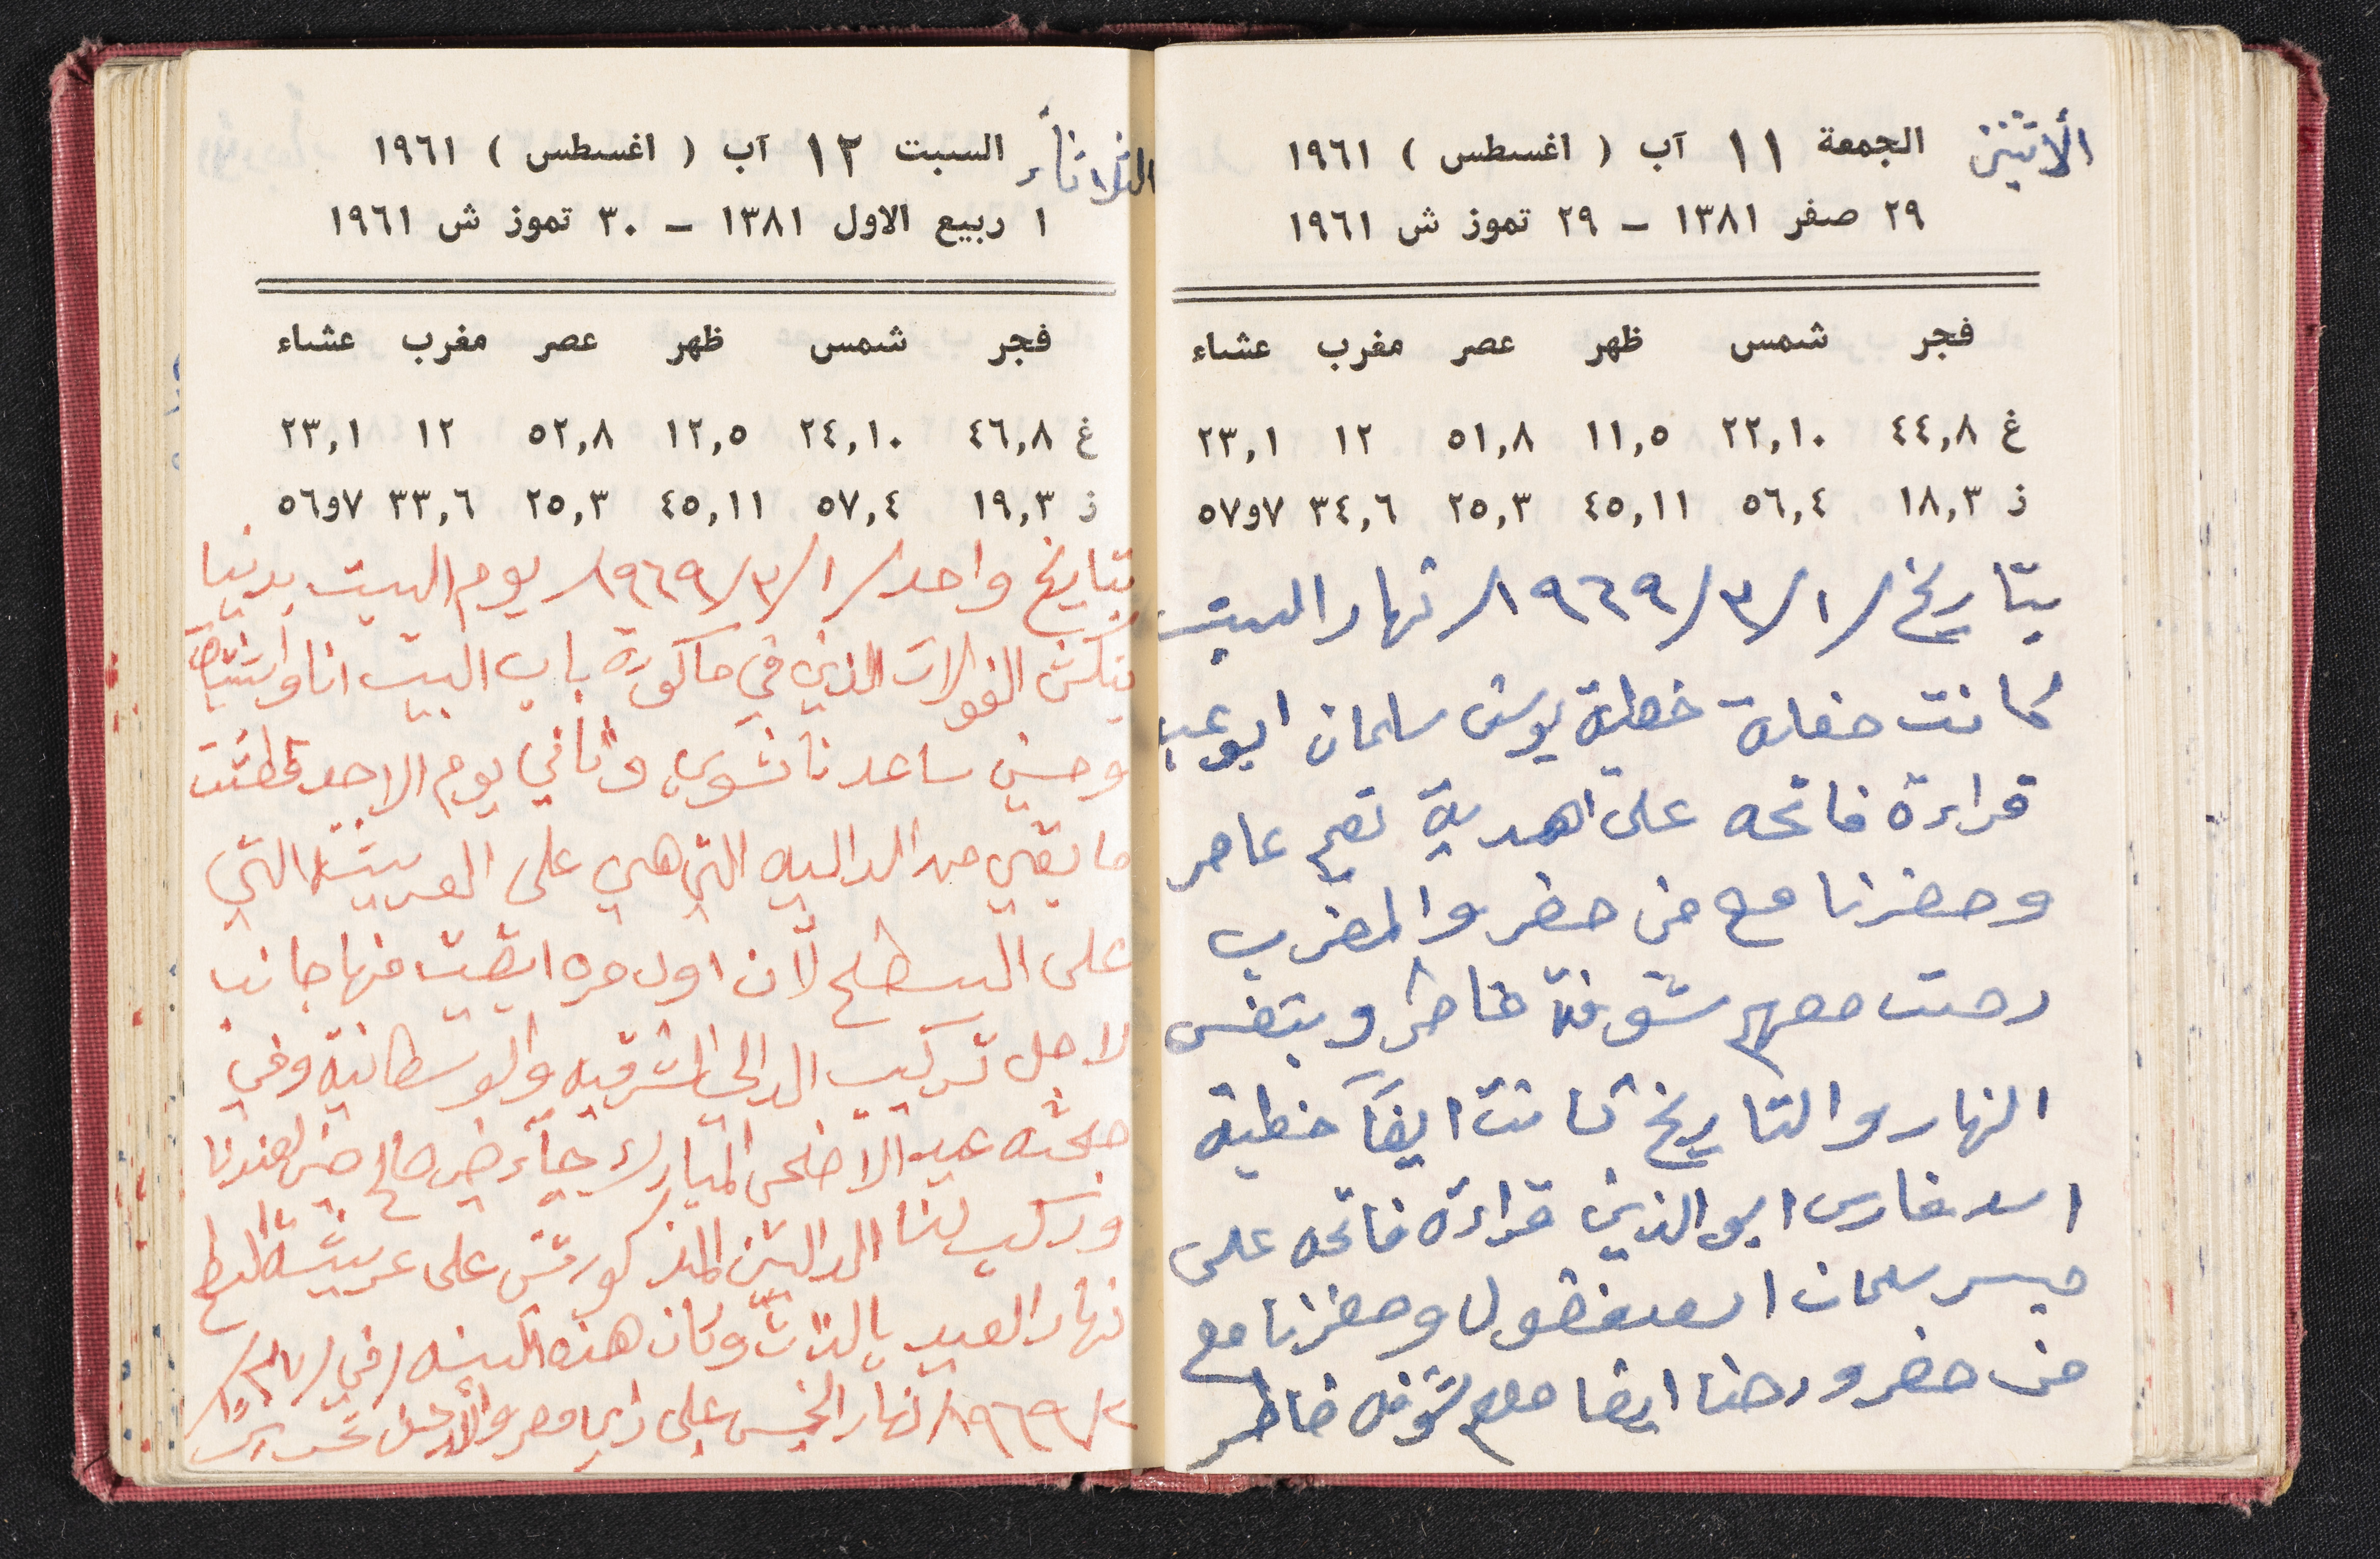 الأثنين الجمعة ١١ آب ( اغسطس ) ١٩٦١
٢٩ صفر ١٣٨١ – ٢٩ تموز ش ١٩٦١
فجر شمس ظهر عصر مغرب عشاء
غ ٤٤,٨ ٢٢,١٠ ١١,٥ ٥١,٨ ١٢ ٢٣,١
ز ١٨,٣ ٥٦,٤ ٤٥,١١ ٢٥,٣ ٣٤,٦ ٥٧و٧
بتاريخ /١/٣/١٩٦٩/ نهار السبت
كانت حفلة خطبة يوسف سلمان ابو عبيد
قراءة فاتحه على اهدية نعيم عامر
وحضرنا مع من حضر والمغرب
رحت معهم شوفة خاطر وبنفس
النهار والتاريخ كانت ايضاً خطبة
اسد فارس ابو الذين قراءة فاتحه على
ميسر سلمان اسعد فضول وحضرنا مع
من حضر ورحنا ايضا معهم شوفة خاطر
الثلاثاء السبت ١٢ آب ( اغسطس ) ١٩٦١
١ ربيع الاول ١٣٨١ – ٣٠ تموز ش ١٩٦١
فجر شمس ظهر عصر مغرب عشاء
غ ٤٦,٨ ٢٤,١٠ ١٢,٥ ٥٢,٨ ١٢ ٢٣,١
ز ١٩,٣ ٥٧,٤ ٤٥,١١ ٢٥,٣ ٣٣,٦ ٥٦و٧
بتايخ واحد /١/٣/١٩٦٩/ يوم السبت بدينا
بنكش الفولات الذي في حاكورة باب البيت انا
وحسن ساعدنا شوي وثاني يوم الاحد
ما بقي من الداليه التي هي على العريشة التي
على السطح لأن اول مره ابقيت منها جانب
لاجل تركيب الدالي الشرقيه والوسطانية وفي
عيد الاضحى المبارك جاء صالح لعندنا
وركب لنا الداليتين المذكورتين على عريشة السطح
نهار العيد بالذات وكان هذه السنه في /٢٧/
٢/١٩٦٩/ نهار الخميس على راي مصر والأردن